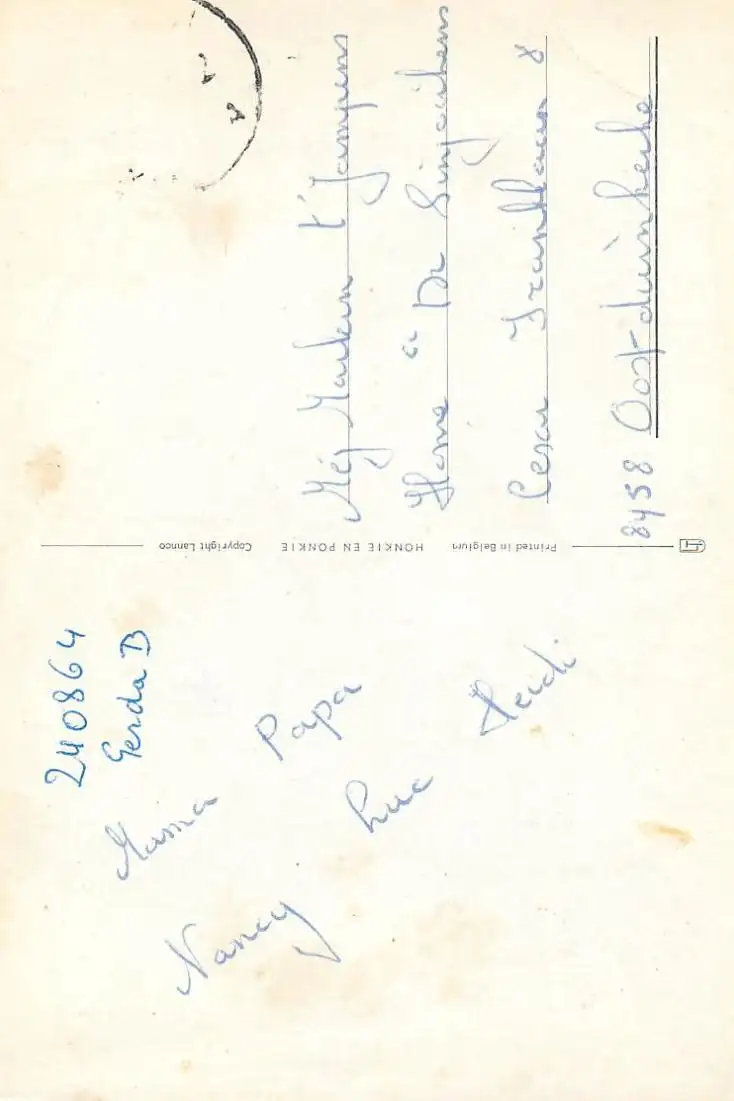 240864
Gerda B
Mama Papa
Nancy Luc Heidi
Copyright Lannoo
HONKIE EN PONKIE
Printed in Belgium
Mej
Home
Cesar Franklaan 8
8458 Oostduinkerke